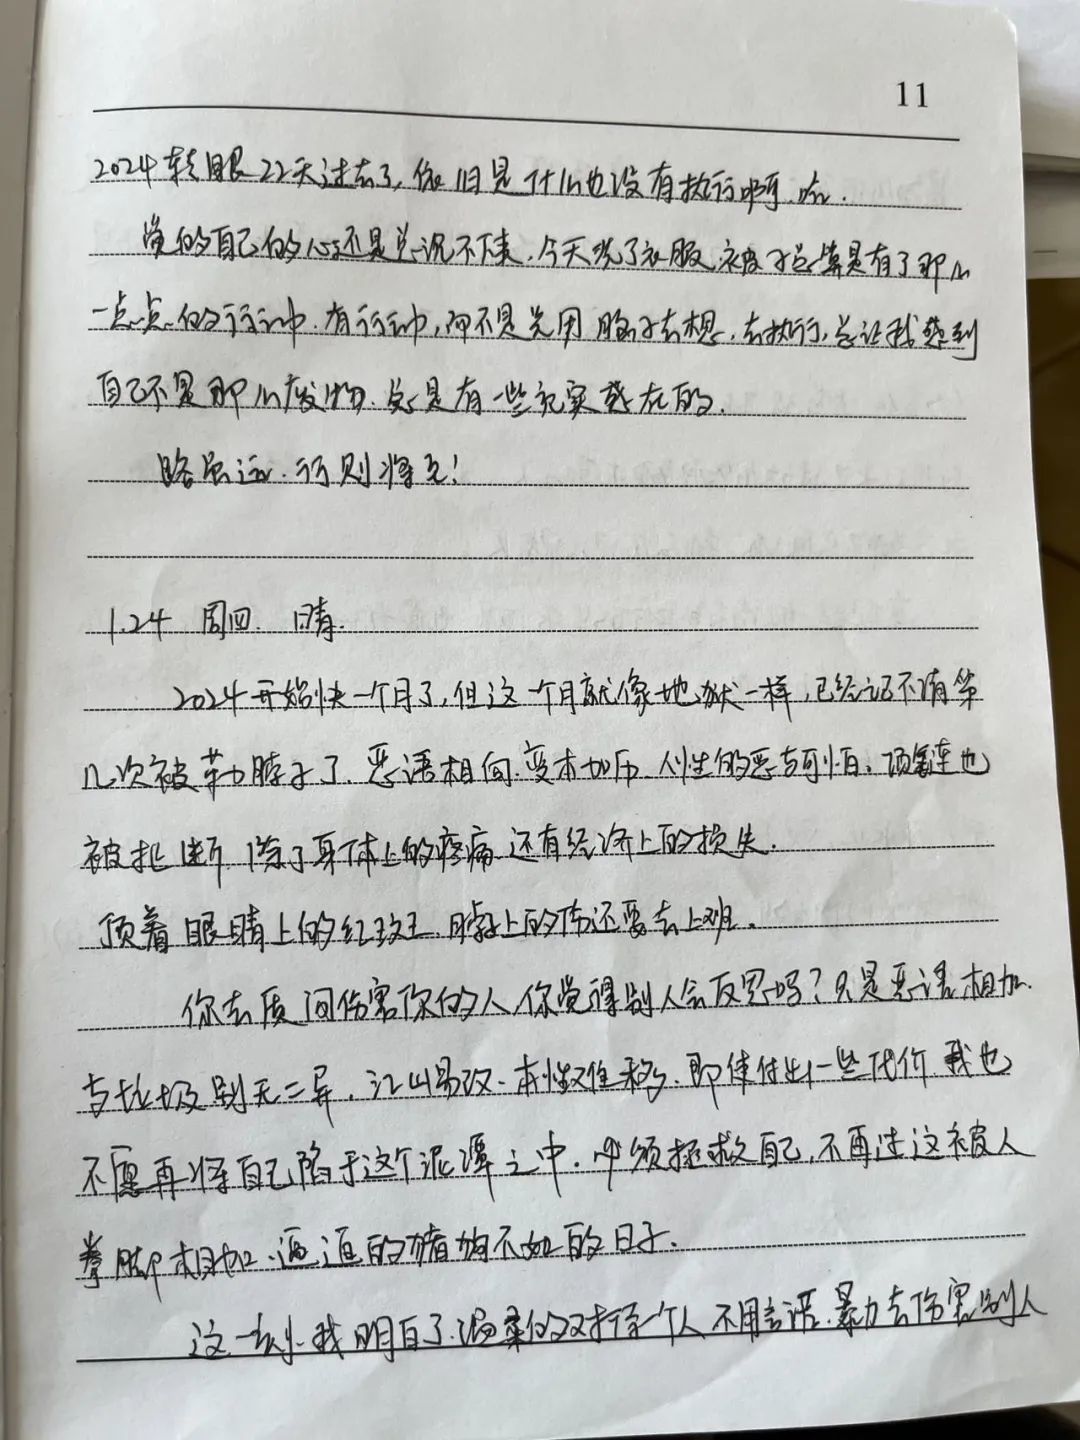 11
2024转眼22天过去了,依旧是什么也没有执行啊.哎.
觉的自己的心还是总沉不下来.今天洗了衣服.被子总算是有了那么
一点点的行动.有行动,而不是光用脑子去想.去执行,总让我感到
自己不是那么废物.总是有一些充实感在的.
路虽远.行则将至!
1.24 周四. 晴.
2024开始快一个月了,但这一个月就像地狱一样,已经记不清第
几次被勒脖子了.恶语相向.变本加厉.人性的恶与可怕.项链也
被扯断.除了身体上的疼痛.还有经济上的损失.
顶着眼睛上的红斑.脖子上的伤还要去上班.
你去质问伤害你的人,你觉得别人会反思吗?只是恶语相加.
与垃圾别无二异.江山易改.本性难移.即使付出一些代价 我也
不愿再将自己陷于这个泥潭之中.必须拯救自己,不再过这被人
拳脚相加.逼迫的猪狗不如的日子.
这一刻.我明白了.温柔的对待一个人 不用言语.暴力去伤害别人